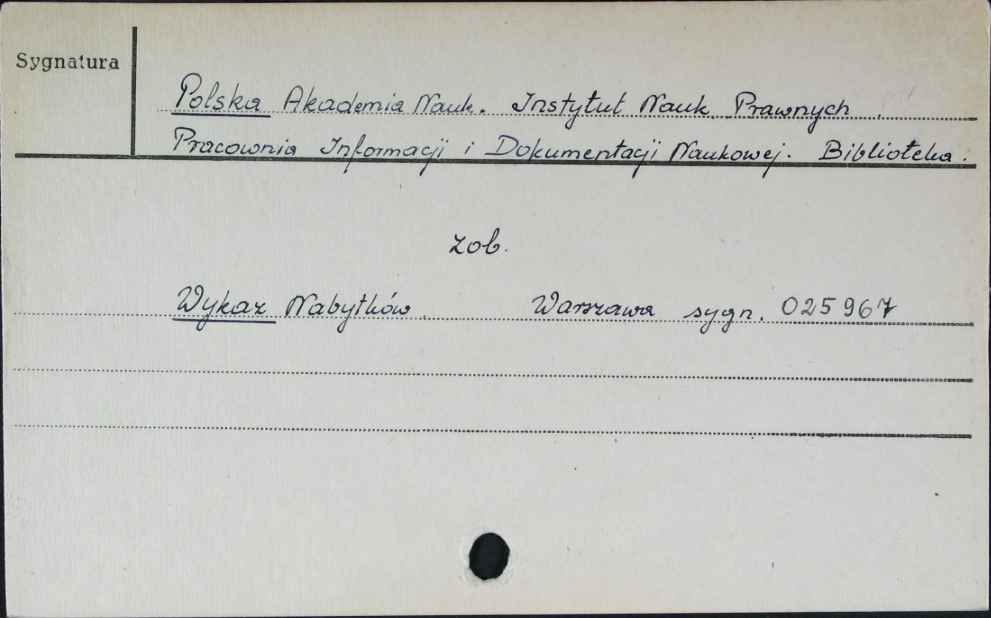 Sygnatura
Polska Akademia Nauk. Instytut Nauk Prawnych.
Pracownia Informacji i Dokumentacji Naukowej. Biblioteka.
zob.
Wykaz Nabytków. Warszawa sygn. 025967